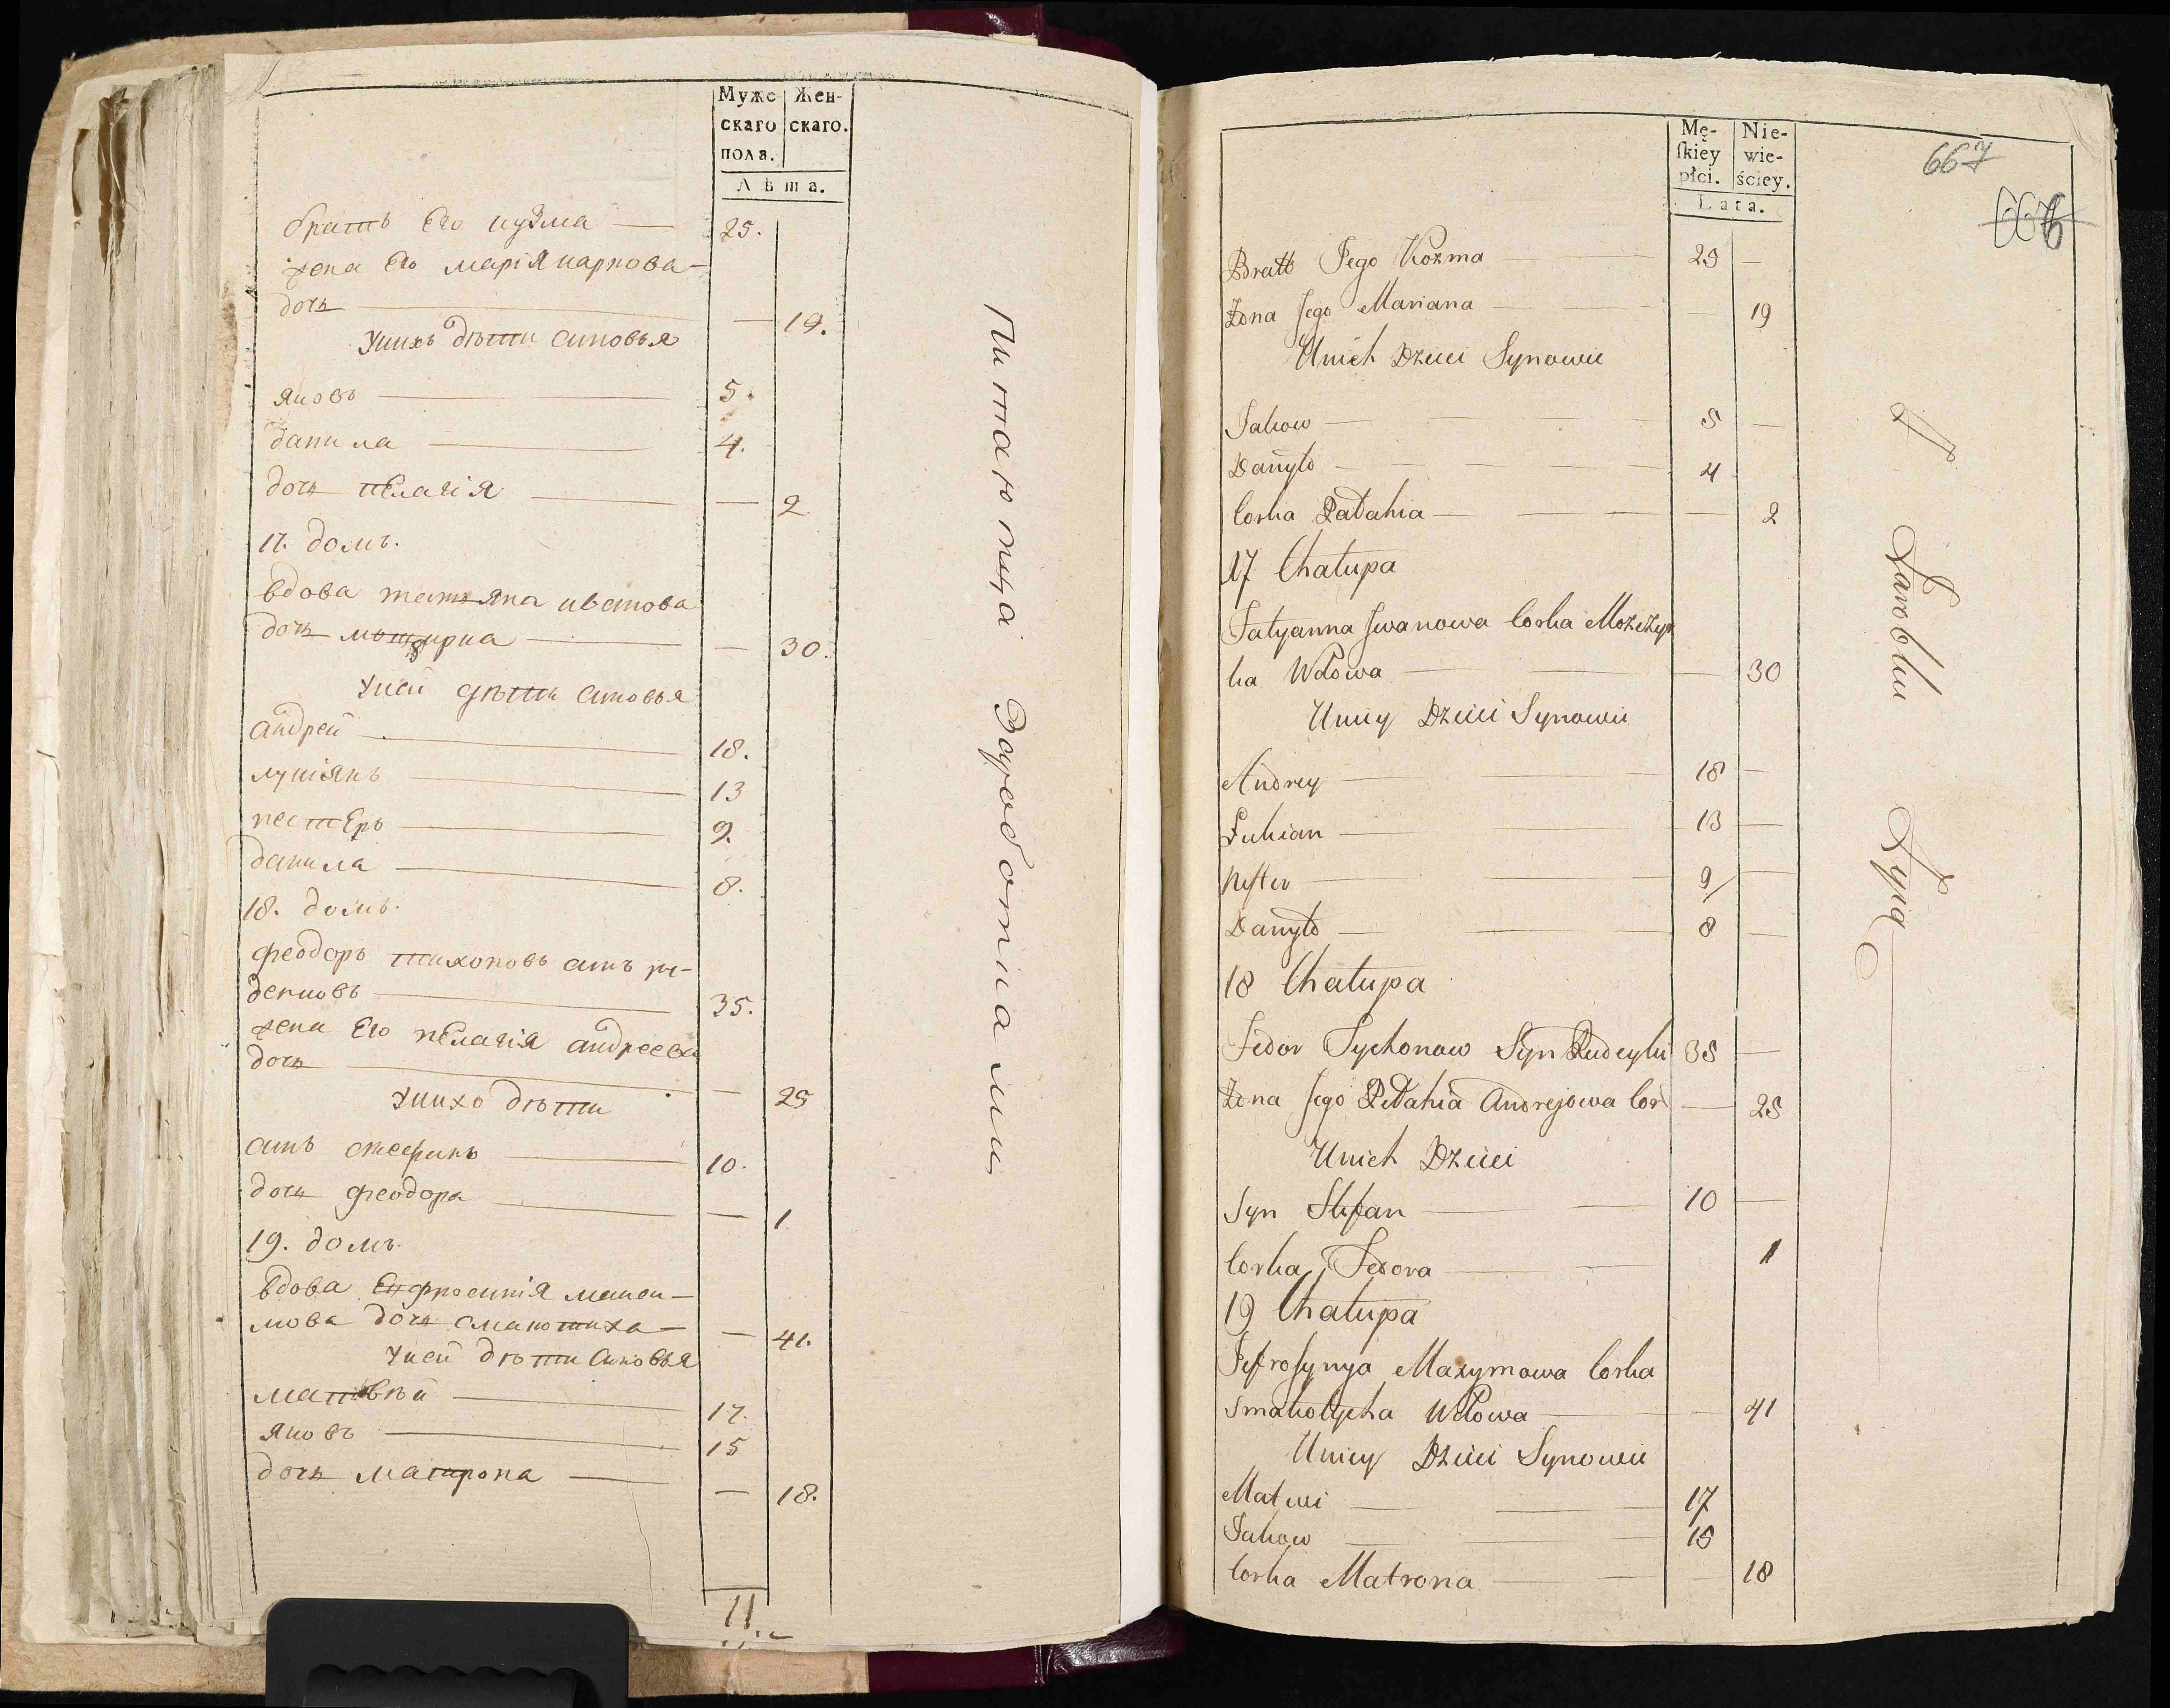 Муже-
скаго
пола.
Жен-
скаго.
Лѣта.
братъ Его кузма — 25.
жена Его марія карпова —
дочь — — 19.
Унихъ дѣти синовья
яковъ — 5.
данила — 4.
дочь пЕлагія — — 2
17. домъ.
вдова татяна иванова
дочь — — 30.
Унеи дѣти синовья
андреи — 18.
лукіянъ — 13
нестЕръ — 9.
данила — 8.
18. домъ.
феодоръ тихоновъ синъ ру-
денковъ — 35.
жена Его пЕлагія андреева
дочь — — 25
Унихъ дѣти
синъ стефанъ — 10.
дочь феодора — — 1
19. домъ.
вдова Ефросинія макси-
мова дочь смакотиха — — 41.
Унеи дѣти синовья
матвѣй — 17.
яковъ — 15
дочь матрона — — 18.
11
Питаютца Заработками
Mę-
ſkiey
płci.
Nie-
wie-
ściey.
Lata.
667
Bratt Jego Kozma — 25 —
Żona Jego Mariana — — 19
Unich Dzieci Synowie
Jakow — 5 —
Danyło — 4
Corka Pałahia — — 2
17 Chałupa
Tatyanna Jwanowa Corka
ka Wdowa — — 30
Uniey Dzieci Synowie
Andrey — 18 —
Łukian — 13 —
Nester — 9 —
Danyło — 8 —
18 Chałupa
Fedor Tychonow Syn Rudeyki 35 —
Żona Jego Pełahia Andrejowa Cor — 25
Unich Dzieci
Syn Stefan — 10 —
Corka Fedora — 1
19 Chałupa
Jefrosynya Maxymowa Corka
Smakotycha Wdowa — — 41
Uniey Dzieci Synowie
Matwi — 17
Jakow — 15
Corka Matrona — — 18
Z Zarobku Żyią